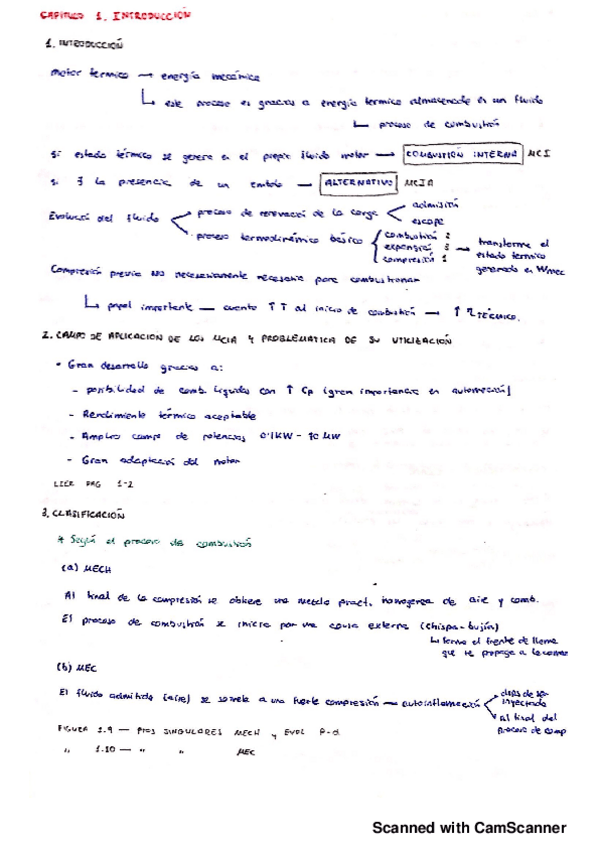 CAPITULO 1. INTRODUCCIÓN
1. INTRODUCCIÓN
motor termico → energía mecánica
↳ este proceso es gracias a energía termica almacenada en un fluido
↳ proceso de combustión
si estado térmico se genera en el propio fluido motor → COMBUSTIÓN INTERNA MCI
si ∃ la presencia de un embolo → ALTERNATIVO MCIA
Evolució del fluido
proceso de renovación de la carga
admisión
escape
proceso termodinámico básico
combustión 2
expansión 3
compresión 1
→ transforma el estado termico generado en Wmec
Compresión previa NO necesariamente necesaria para combustionar
↳ papel importante — cuanto ↑↑ al inicio de combustión → ↑ η TÉRMICO.
2. CAMPO DE APLICACIÓN DE LOS MCIA Y PROBLEMATICA DE SU UTILIZACIÓN
• Gran desarrollo gracias a:
- posibilidad de comb. liquidos con ↑ Cp (gran importancia en automoción)
- Rendimiento térmico aceptable
- Amplio campo de potencias 0'1KW - 70 MW
- Gran adaptación del motor
LEER PAG 1-2
3. CLASIFICACIÓN
* Según el proceso de combustión
(a) MECH
Al final de la compresión se obtiene una mezcla pract. homogenea de aire y comb.
El proceso de combustión se inicia por una causa externa (Chispa-bujía)
↳ forma el frente de llama
que se propaga a la
(b) MEC
El fluido admitido (aire) se somete a una fuerte compresión → autoinflamación
inyectado
Al final del
proceso de comp
FIGURA 1.9 — PTOS SINGULARES MECH y EVOL P-α
" 1.10 — " " MEC
Scanned with CamScanner